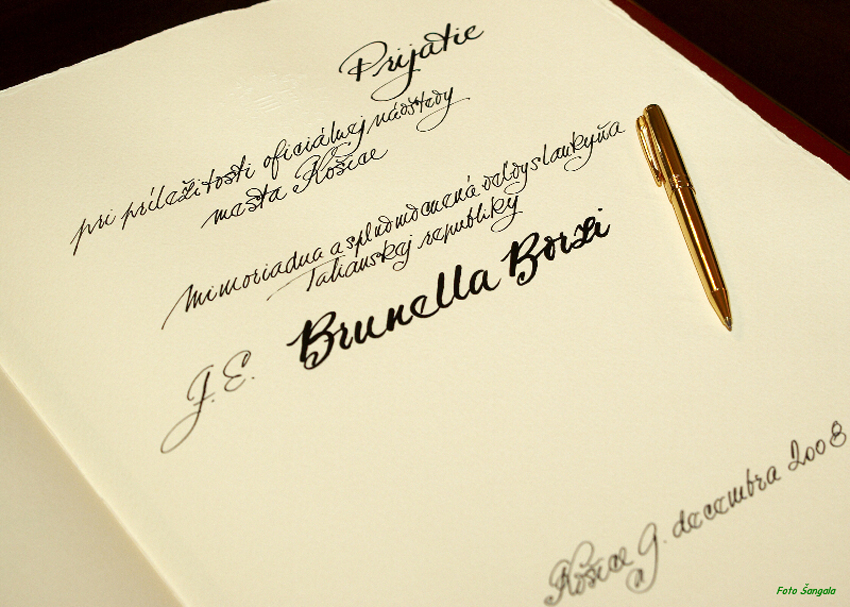 Prijatie
pri príležitosti oficiálnej návštevy
mesta Košice
Mimoriadna a splnomocnená veľvyslankyňa
Talianskej republiky
J. E. Brunella Borzi
Košice 9. decembra 2008
Foto Šangala